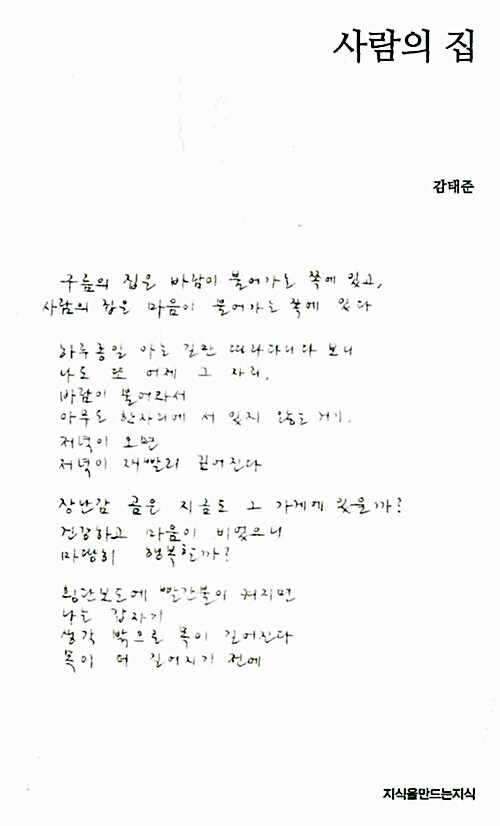 사람의 집
감태준
구름의 집은 바람이 불어가는 쪽에 있고,
사람의 집은 마음이 불어가는 쪽에 있다
하루종일 아는 길만 따라다니다 보니
나는 또 어제 그 자리,
바람이 불어와서
아무도 한자리에 서 있지 않는 거기.
저녁이 오면
저녁이 재빨리 깊어진다
장난감 곰은 지금도 그 가게에 있을까?
건강하고 마음이 비었으니
마땅히 행복한가?
횡단보도에 빨간불이 켜지면
나는 갑자기
생각 밖으로 목이 길어진다
목이 더 길어지기 전에
지식을만드는지식